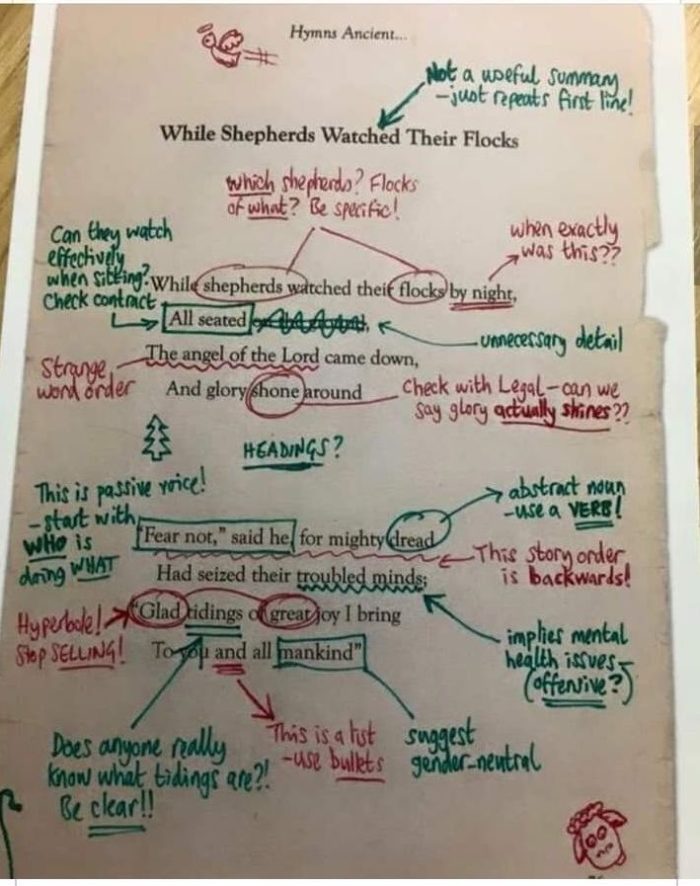 Hymns Ancient...
Not a useful summary
- just repeats first line!
While Shepherds Watched Their Flocks
Which shepherds? Flocks
of what? Be specific!
when exactly
was this??
Can they watch
effectively
when sitting?
Check contract
While shepherds watched their flocks by night,
All seated
unnecessary detail
The angel of the Lord came down,
Strange
word order
And glory shone around
Check with Legal - can we
say glory actually shines??
HEADINGS?
This is passive voice!
- start with
WHO is
doing WHAT
abstract noun
- use a VERB!
"Fear not," said he, for mighty dread
This story order
is backwards!
Had seized their troubled minds;
"Glad tidings of great joy I bring
Hyperbole!
Stop SELLING!
To you and all mankind"
implies mental
health issues -
(offensive?)
Does anyone really
know what tidings are?!
Be clear!!
This is a list
- use bullets
suggest
gender-neutral